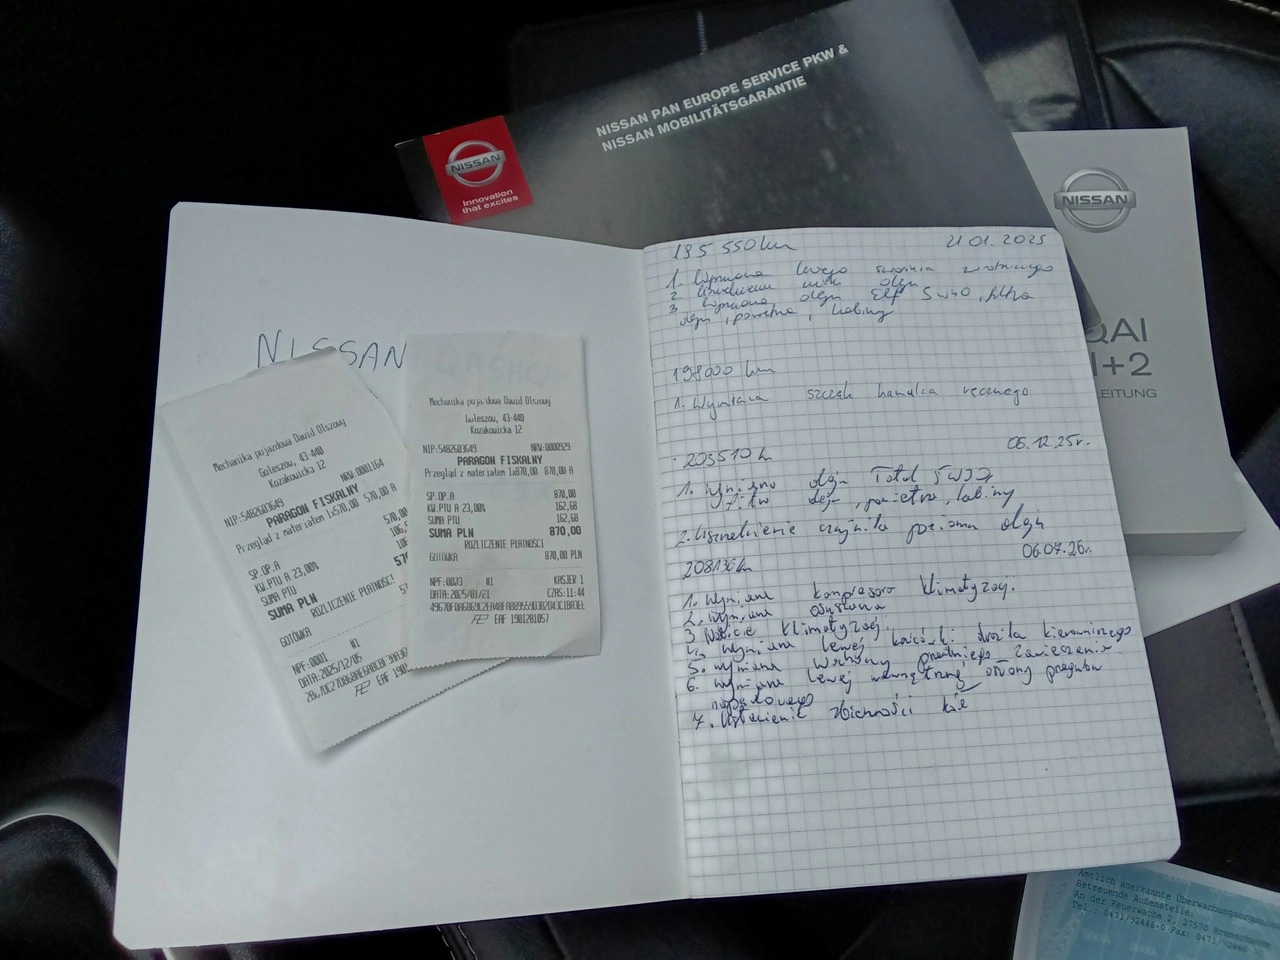 NISSAN PAN EUROPE SERVICE PKW &
NISSAN MOBILITÄTSGARANTIE
NISSAN
Innovation
that excites
NISSAN
QAI
I+2
LEITUNG
NISSAN
Mechanika pojazdowa Dawid Olszowy
Goleszow, 43-440
Kozakowicka 12
NIP:5482603649 NRW:0001164
PARAGON FISKALNY
Przegląd z materiałem 1x570,00 570,00 A
SP.OP.A 570,00
KW.PTU A 23,00%
SUMA PTU
SUMA PLN
ROZLICZENIE PŁATNOŚCI
GOTÓWKA
NPF:0001 #1
DATA:2025/12/05
Mechanika pojazdowa Dawid Olszowy
Goleszow, 43-440
Kozakowicka 12
NIP:5482603649 NRW:0000929
PARAGON FISKALNY
Przegląd z materiałem 1x870,00 870,00 A
SP.OP.A 870,00
KW.PTU A 23,00% 162,68
SUMA PTU 162,68
SUMA PLN 870,00
ROZLICZENIE PŁATNOŚCI
GOTÓWKA 870,00 PLN
NPF:0023 #1 KASJER 1
DATA:2025/01/21 CZAS:11:44
EAF 1901281057
195 550 km 21.01.2025
1. Wymiana lewego sworznia zwrotnicy
2. oleju
3 Wymiana oleju Elf 5w40, filtra
oleju, powietrza, kabiny
198000 km
1. Wymiana szczęk hamulca ręcznego
203510 km 06.12.25r.
1. Wymiana oleju Total 5W30
filtrów oleju, powietrza, kabiny
2. Uszczelnienie czujnika poziomu oleju
208136 km 06.07.26r.
1. Wymiana kompresora klimatyzacji.
2. Wymiana osuszacza
3 Nabicie klimatyzacji.
4. Wymiana lewej końcówki drążka kierowniczego
5. Wymiana wahaczy przedniego zawieszenia
6. Wymiana lewej wewnętrznej osłony przegubu
napędowego
7. Ustawienie zbieżności kół
Amtlich anerkannte
Betreuende Außenstelle:
An der Feuerwache 2, 27570 Bremerhaven
Tel.: 0471/92446-0 Fax: 0471/92446